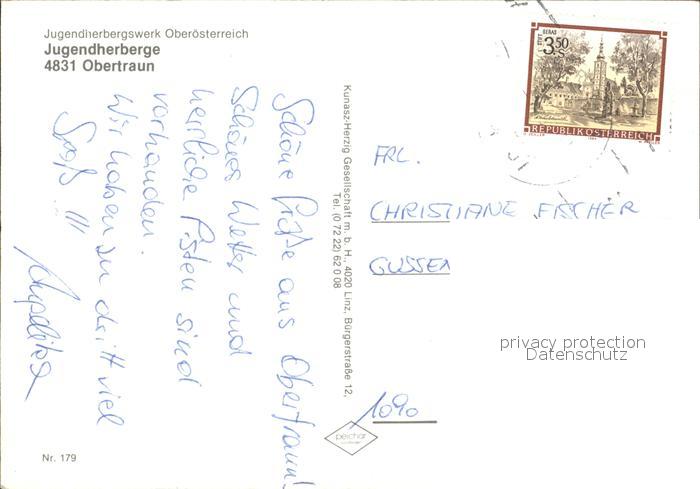 Jugendherbergswerk Oberösterreich
Jugendherberge
4831 Obertraun
Schöne Grüße aus Obertraun!
Schönes Wetter und
herrliche Pisten sind
vorhanden.
Wir haben zu dritt viel
Spaß !!!
Kunasz-Herzig Gesellschaft m. b. H., 4020 Linz, Bürgerstraße 12,
Tel. (0 72 22) 62 0 08
STIFT GERAS
3.50
S
REPUBLIK ÖSTERREICH
FRL.
CHRISTIANE FISCHER
GUSSEN
privacy protection
Datenschutz
1090
peichar
Nr. 179